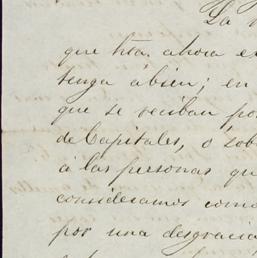 La
que hta. ahora ex
tenga á bien; en
que se reciban por
de Capitales, ó sob
á las personas qu
consideramos com
por una desgracia